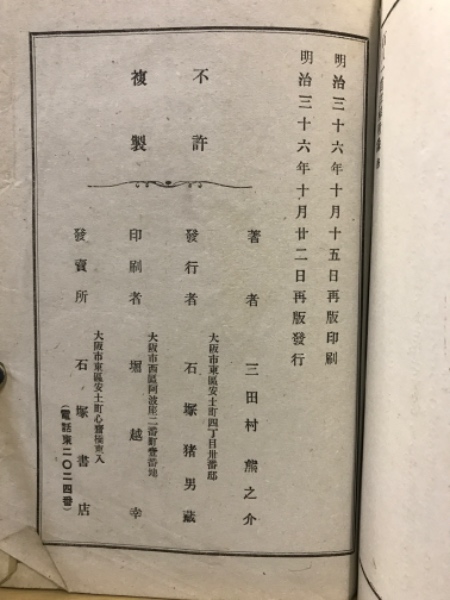 明治三十六年十月十五日再版印刷
明治三十六年十月廿二日再版發行
不許
複製
著者 三田村熊之介
大阪市東區安土町四丁目卅番邸
發行者 石塚猪男藏
大阪市西區阿波座二番町壹番地
印刷者 堀越幸
大阪市東區安土町心齋橋東入
發賣所 石塚書店
(電話東二〇二四番)